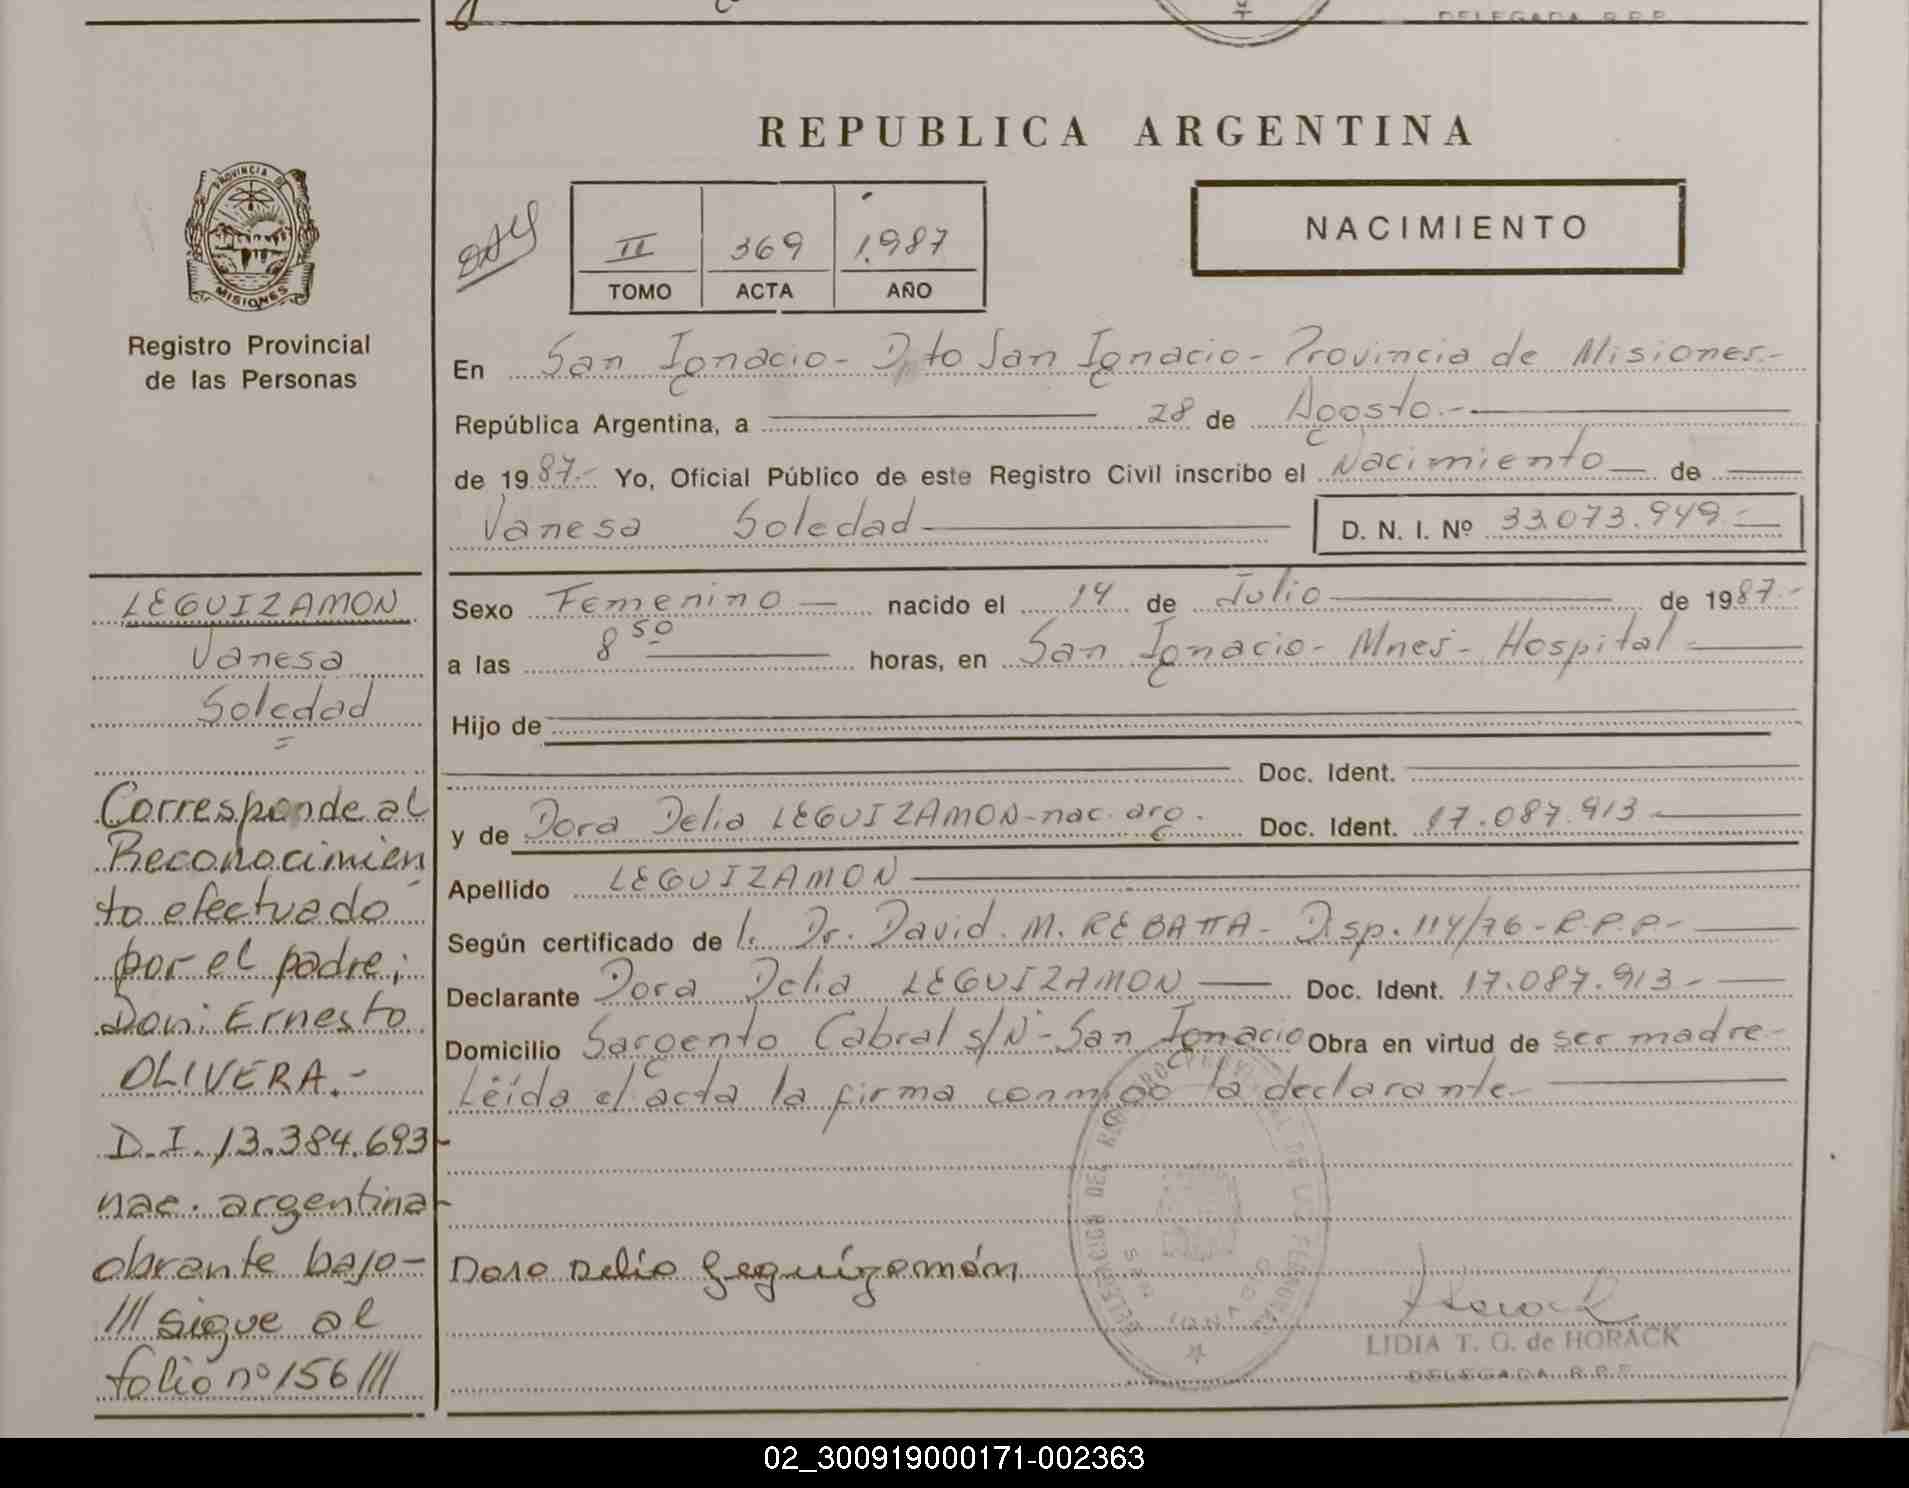 DELEGADA R.P.P.
REPUBLICA ARGENTINA
PROVINCIA DE
MISIONES
Registro Provincial
de las Personas
II 369 1.987
TOMO ACTA AÑO
NACIMIENTO
En San Ignacio - Dpto San Ignacio - Provincia de Misiones.-
República Argentina, a 28 de Agosto.-
de 1987.- Yo, Oficial Público de este Registro Civil inscribo el Nacimiento de
Vanesa Soledad D. N. I. Nº 33.073.949.-
Sexo Femenino nacido el 14 de Julio de 1987.-
a las 8 50 horas, en San Ignacio - Mnes - Hospital
Hijo de
Doc. Ident.
y de Dora Delia LEGUIZAMON - nac. arg. Doc. Ident. 17.087.913
Apellido LEGUIZAMON
Según certificado de l. Dr. David. M. REBATTA - Disp. 114/76 - R.P.P.-
Declarante Dora Delia LEGUIZAMON Doc. Ident. 17.087.913.-
Domicilio Sargento Cabral s/Nº - San Ignacio Obra en virtud de ser madre.-
Leída el acta la firma conmigo la declarante.
Dora Delia Leguizamón
Horack
LIDIA T. G. de HORACK
DELEGADA R.P.P.
LEGUIZAMON
Vanesa
Soledad
Corresponde al
Reconocimien
to efectuado
por el padre;
Don: Ernesto
OLIVERA.-
D.I. 13.384.693-
nac. argentina-
obrante bajo-
/// sigue al
folio nº 156 ///
02_300919000171-002363